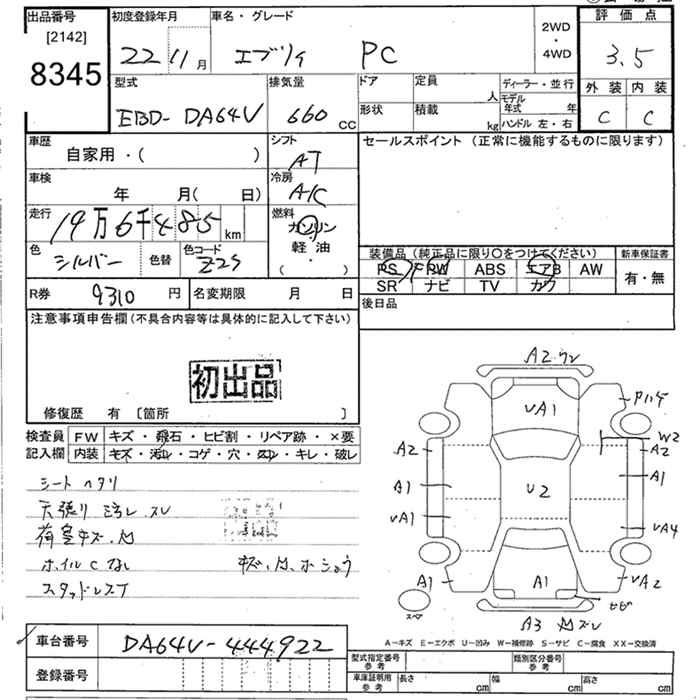 出品番号 初度登録年月 車名・グレード 2WD・4WD 評価点
[2142]
8345
22 11月 エブリイ PC 3.5
型式 排気量 ドア 定員 人 ディーラー・並行 外装 内装
EBD-DA64V 660 CC 形状 積載 kg モデル年式 年 ハンドル 左・右 C C
車歴 シフト セールスポイント (正常に機能するものに限ります)
自家用・( ) AT
車検 冷房
年 月( 日) A/C
走行 燃料
19万6千485 km ガソリン
軽・油
( )
色 シルバー 色替 色コード Z2S
装備品 (純正品に限り〇をつけてください) 新車保証書
PS PW ABS エアB AW 有・無
SR ナビ TV カワ
R券 9310 円 名変期限 月 日 後日品
注意事項申告欄(不具合内容等は具体的に記入して下さい)
初出品
修復歴 有 [箇所 ]
検査員 FW キズ・飛石・ヒビ割・リペア跡・×要
記入欄 内装 キズ・汚れ・コゲ・穴・スレ・キレ・破レ
シートヘタリ
天張り汚レ、スレ
荷室キズ、凹
ホイルCなし キズ、凹、ホショウ
スタッドレスT
A2 ワレ
UA1
Pハゲ
W2
A2
A2
A1
A1
U2
UA1
UA4
A1
A1
UA2
ヒビ
スペア
A3 凹 ズレ
A-キズ E-エクボ U-凹み W-補修跡 S-サビ C-腐食 XX-交換済
車台番号 DA64V-444922
登録番号
型式指定番号 参考 類別区分番号 参考
車庫証明用 参考 長さ cm 幅 cm 高さ cm